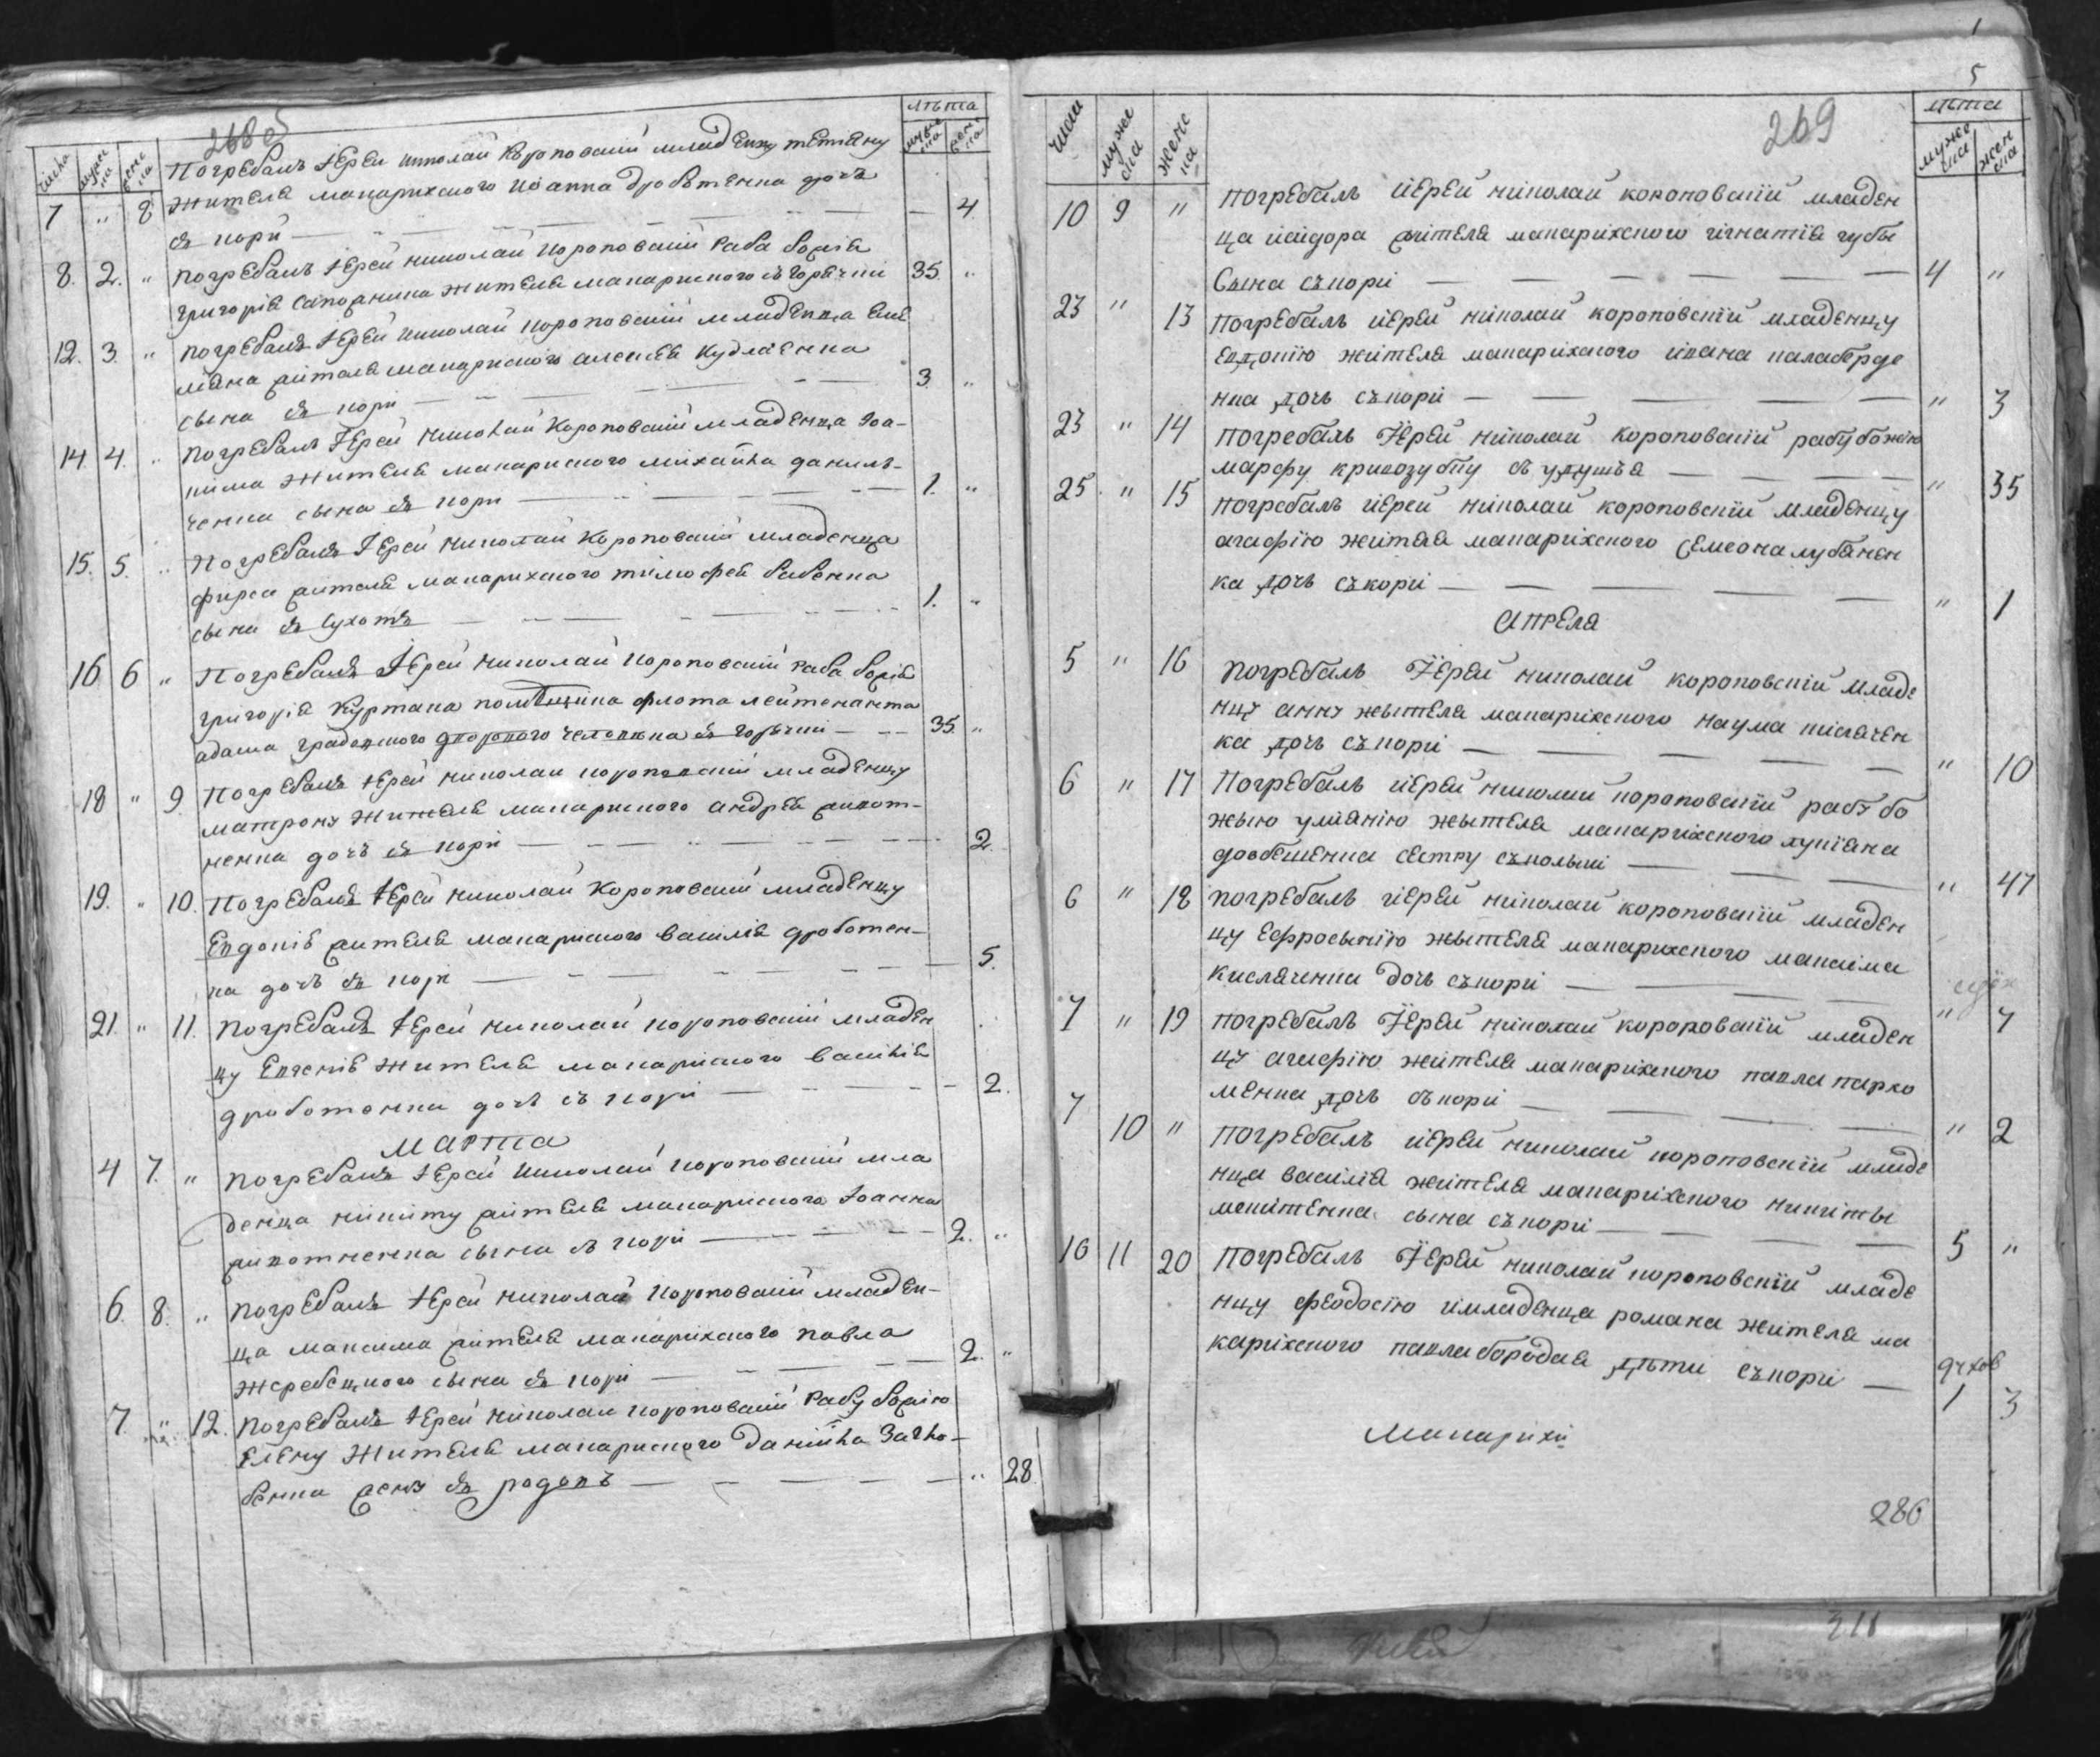 268 об
числа муже на женс на лѣта мужс на женс на
Погребалъ Іерей николай Короповскій младенцу тетяну
7 " 8 жителя макарихского Іоанна дроботенка дочь
съ кори — 4
8. 2. " погребалъ Іерей николай короповскій раба божія
григорія сапожника жителя макариского съ горячки 35. "
12. 3. " погребалъ Іерей николай короповскій младенца еме
ліана жителя макариского алексея кудлаенка
сына съ кори — 3. "
14. 4. " погребалъ Іерей николай Короповскій младенца Іоа-
кима жителя макариского михайла даниль-
ченка сына съ кори — 1. "
15. 5. " Погребалъ Іерей николай Короповскій младенца
фирса жителя макарихского тимофея бабенка
сына съ сухотъ — 1. "
16 6 " Погребалъ Іерей николай короповскій раба божія
григорія Куртака помѣщика флота лейтенанта
адама градовского дворового человѣка съ горячки — 35. "
18 " 9. Погребалъ Іерей николай короповскій младенцу
матрону жителя макариского андрея живот-
ненка дочь съ кори — 2.
19. " 10. Погребалъ Іерей николай Короповскій младенцу
Евдокію жителя макариского василія дроботен-
ка дочь съ кори — 5.
21. " 11. погребалъ Іерей николай короповскій младен
цу Евгенію жителя макариского василія
дроботенка дочь съ кори — 2.
марта
4 7. " погребалъ Іерей николай короповскій мла
денца никиту жителя макариского Іоанна
животненка сына съ кори — 2. "
6. 8. " погребалъ Іерей николай короповскій младен-
ца максима жителя макарихского павла
жеребецкого сына съ кори — 2. "
7. " 12. погребалъ Іерей николай короповскій рабу божію
Елену жителя макариского даніила
бенка жену съ родовъ — " 28.
1
5
269
числа муже на женс на лѣта муже на жен на
10 9 " погребалъ іерей николай короповскій младен
ца ісидора жителя макарихского игнатія губы
Сына съкори — 4 "
23 " 13 погребалъ іерей николай короповскій младенцу
евдокію жителя макарихского ивана калаберде
нка дочь съкори — " 3
23 " 14 погребалъ Іерей николай короповскій рабу божію
марфу кривозубку съ удушья — " 35
25 " 15 погребалъ іерей николай короповскій младенцу
агафію жителя макарихского Семеона лубянен
ка дочь съкори — " 1
Апреля
5 " 16 погребалъ Іерей николай короповскій младе
нцу анну жытеля макарихского наума кисячен
ка дочь съкори — " 10
6 " 17 Погребалъ іерей николай короповскій рабу бо
жыю улиянію жытеля макарихского лукіяна
довбешенка сестру съкольки — " 47
6 " 18 погребалъ іерей николай короповскій младен
цу ефросынію жытеля макарихского максима
кислаченка дочь съкори — " 4
7 " 19 погребалъ Іерей николай короповскій младен
цу агафію жителя макарихского павла пархо
менка дочь съкори — " 2
7 10 " погребалъ іерей николай короповскій младе
нца василія жителя макарихского никиты
микитенка сына съкори — 5 "
16 11 20 погребалъ Іерей николай короповскій младе
нцу феодосію имладенца романа жителя ма
карихского павла бородая дѣти съкори — духов
1 3
Макарихи
286
311